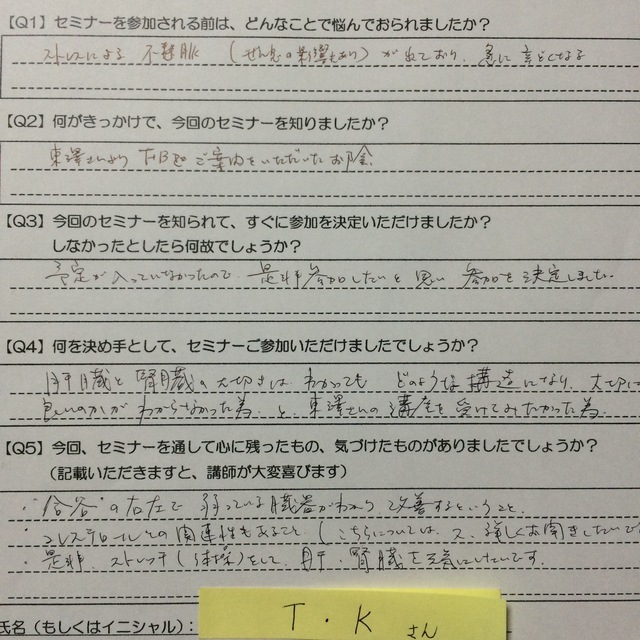 【Q1】セミナーを参加される前は、どんなことで悩んでおられましたか？
ストレスによる 不整脈 (ぜん息の影響もあり) が出ており、急に
【Q2】何がきっかけで、今回のセミナーを知りましたか？
東澤さんより FBで ご案内をいただいたお陰。
【Q3】今回のセミナーを知られて、すぐに参加を決定いただけましたか？
しなかったとしたら何故でしょうか？
予定が入っていなかったので 是非参加したいと思い 参加を決定しました。
【Q4】何を決め手として、セミナーご参加いただけましたでしょうか？
肝臓と腎臓の大切さは わかっても どのような構造になり、大切に
良いのかが わからなかった為 と、東澤さんの講座を受けてみたかった為。
【Q5】今回、セミナーを通して心に残ったもの、気づけたものがありましたでしょうか？
（記載いただきますと、講師が大変喜びます）
・“合谷”の右左で 弱っている臓器がわかり 改善するということ。
・コレステロールとの関連性もあること (こちらについては、又、詳しくお聞きしたいで
・是非、ストレッチ(体操)をして、肝・腎臓を元気にしたいです。
氏名（もしくはイニシャル）：
T・K さん